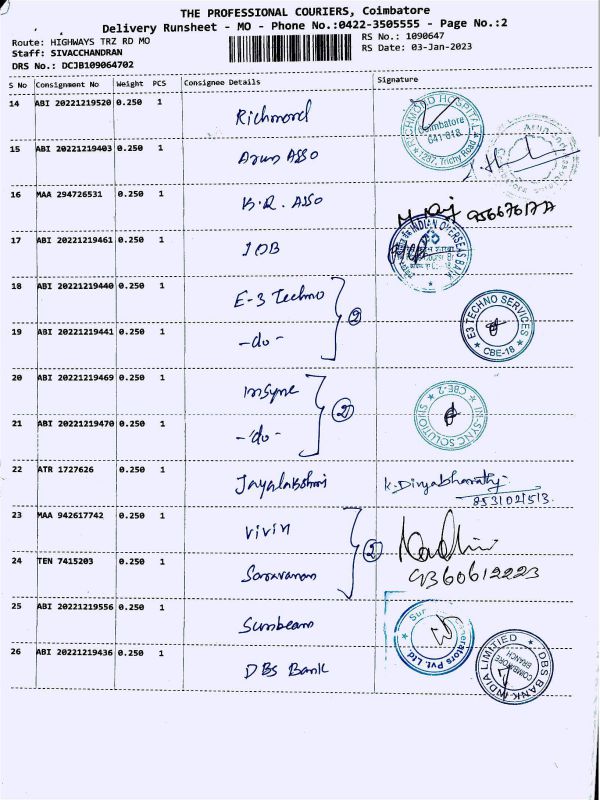 THE PROFESSIONAL COURIERS, Coimbatore
Delivery Runsheet - MO - Phone No.:0422-3505555 - Page No.:2
Route: HIGHWAYS TRZ RD MO
RS No.: 1090647
Staff: SIVACCHANDRAN
RS Date: 03-Jan-2023
DRS No.: DCJB109064702
S No Consignment No Weight PCS Consignee Details Signature
14 ABI 20221219520 0.250 1 Richmond
RICHMOND HOSPITAL
Coimbatore
641-018
1287, Trichy Road
15 ABI 20221219403 0.250 1 Arun ASSO
16 MAA 294726531 0.250 1 B.R. ASSO
17 ABI 20221219461 0.250 1 IOB
INDIAN OVERSEAS BANK
18 ABI 20221219440 0.250 1 E-3 Techno
2
E3 TECHNO SERVICES
CBE-18
19 ABI 20221219441 0.250 1 -do-
20 ABI 20221219469 0.250 1 Insync
2
INSYNC SOLUTIONS
CBE-2
21 ABI 20221219470 0.250 1 -do-
22 ATR 1727626 0.250 1 Jayalakshmi K. Divyabharathy
8531021513
23 MAA 942617742 0.250 1 Vivin
2
24 TEN 7415203 0.250 1 Saravanan 9360612223
25 ABI 20221219556 0.250 1 Sunbeam
Pvt. Ltd.
26 ABI 20221219436 0.250 1 DBS Bank
DBS BANK INDIA LIMITED
COIMBATORE
BRANCH